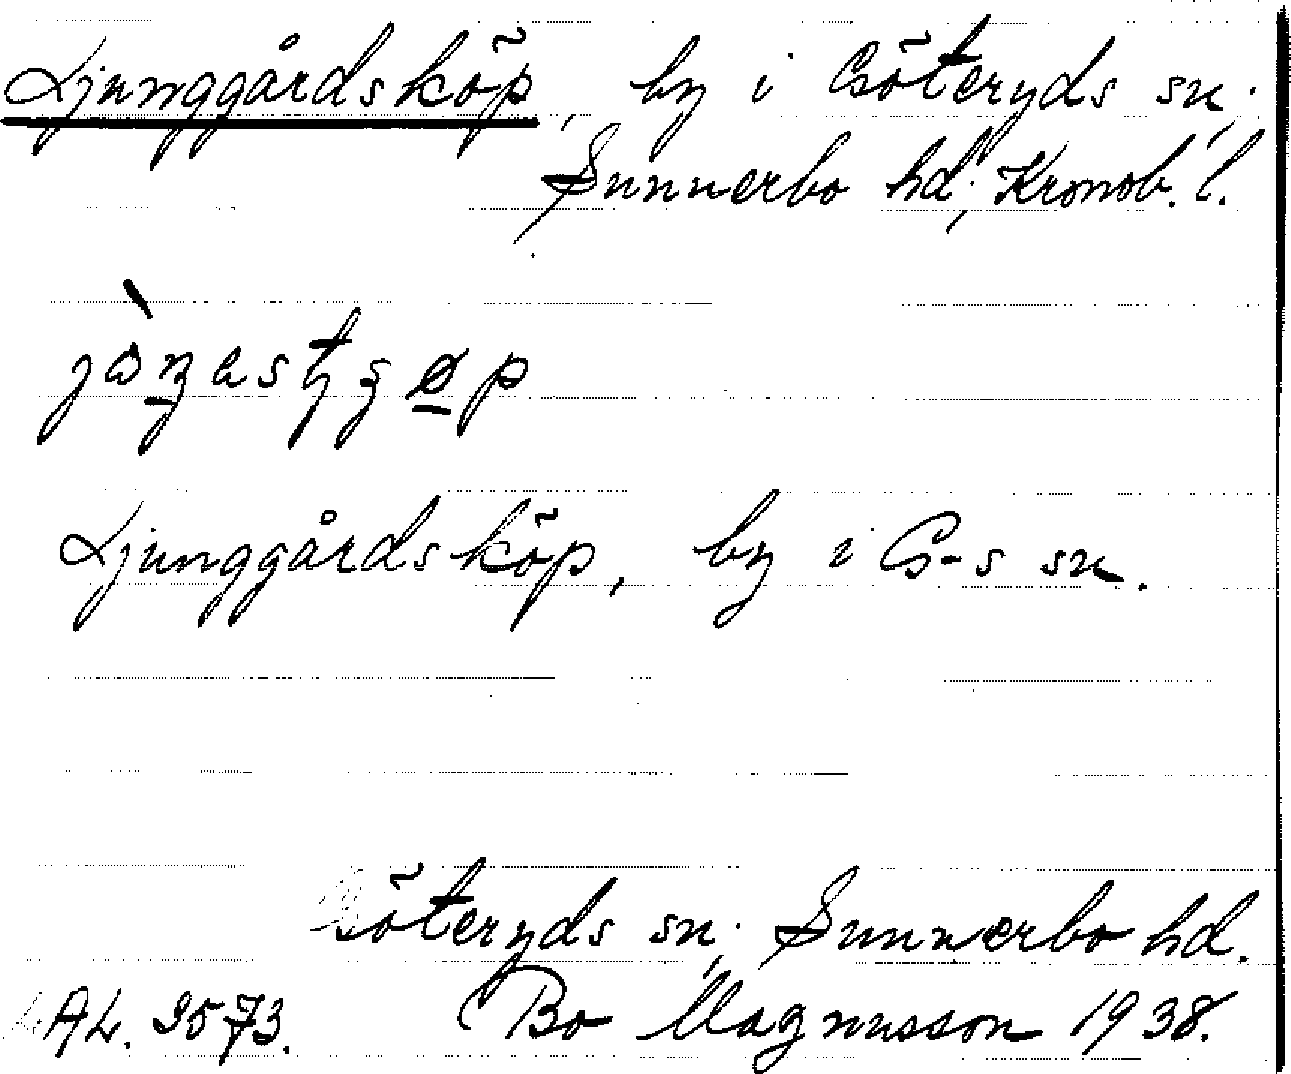 Ljunggårdsköp, by i Göteryds sn.,
Sunnerbo hd, Kronob. l.
Ljunggårdsköp, by i G-s sn.
Göteryds sn., Sunnerbo hd.
AL. 9573. Bo Magnusson 1938.